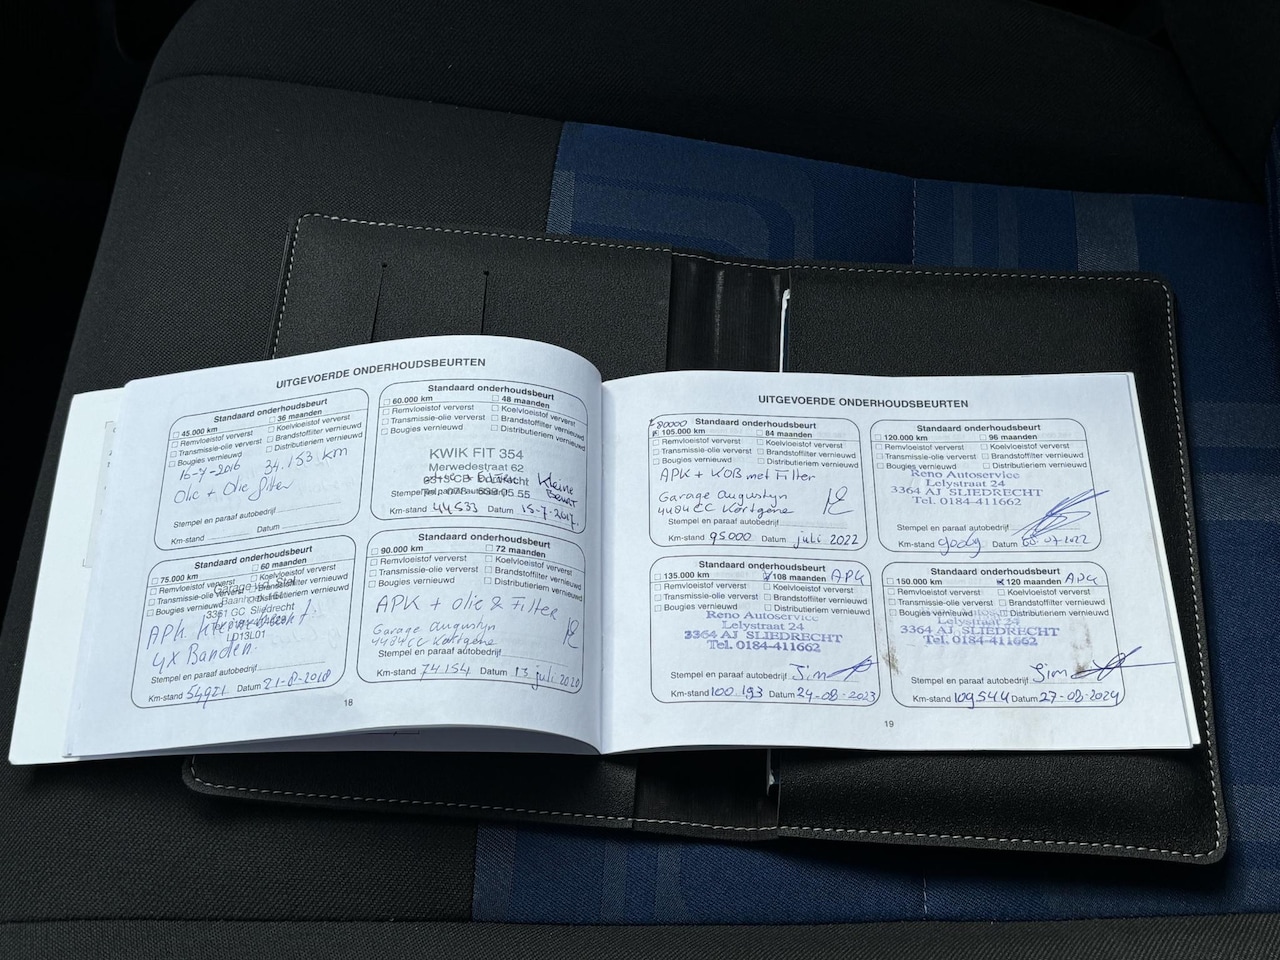 UITGEVOERDE ONDERHOUDSBEURTEN
Standaard onderhoudsbeurt
45.000 km 36 maanden
Remvloeistof ververst Koelvloeistof ververst
Transmissie-olie ververst Brandstoffilter vernieuwd
Bougies vernieuwd Distributieriem vernieuwd
16-7-2016 34.153 km
Olie + Olie filter
Stempel en paraaf autobedrijf
Km-stand Datum
Standaard onderhoudsbeurt
60.000 km 48 maanden
Remvloeistof ververst Koelvloeistof ververst
Transmissie-olie ververst Brandstoffilter vernieuwd
Bougies vernieuwd Distributieriem vernieuwd
KWIK FIT 354
Merwedestraat 62
Kleine
Beurt
Stempel
Km-stand 44533 Datum 15-7-2017
Standaard onderhoudsbeurt
75.000 km 60 maanden
Remvloeistof ververst Koelvloeistof ververst
Transmissie-olie ververst
Bougies vernieuwd
3361 GC Sliedrecht
APK Kleine beurt
LD13L01
4x Banden.
Stempel en paraaf autobedrijf
Km-stand 54921 Datum 21-8-2018
Standaard onderhoudsbeurt
90.000 km 72 maanden
Remvloeistof ververst Koelvloeistof ververst
Transmissie-olie ververst Brandstoffilter vernieuwd
Bougies vernieuwd Distributieriem vernieuwd
APK + olie & Filter
Garage Augustyn
4484CC Kortgene
Stempel en paraaf autobedrijf
Km-stand 74154 Datum 13 juli 2020
18
UITGEVOERDE ONDERHOUDSBEURTEN
80000 Standaard onderhoudsbeurt
105.000 km 84 maanden
Remvloeistof ververst Koelvloeistof ververst
Transmissie-olie ververst Brandstoffilter vernieuwd
Bougies vernieuwd Distributieriem vernieuwd
APK + KOB met Filter
Garage Augustyn
4484CC Kortgene
Stempel en paraaf autobedrijf
Km-stand 95000 Datum juli 2022
Standaard onderhoudsbeurt
120.000 km 96 maanden
Remvloeistof ververst Koelvloeistof ververst
Transmissie-olie ververst Brandstoffilter vernieuwd
Bougies vernieuwd Distributieriem vernieuwd
Reno Autoservice
Lelystraat 24
3364 AJ SLIEDRECHT
Tel. 0184-411662
Stempel en paraaf autobedrijf
Km-stand Datum 07-2022
Standaard onderhoudsbeurt
135.000 km 108 maanden APK
Remvloeistof ververst Koelvloeistof ververst
Transmissie-olie ververst Brandstoffilter vernieuwd
Bougies vernieuwd Distributieriem vernieuwd
Reno Autoservice
Lelystraat 24
3364 AJ SLIEDRECHT
Tel. 0184-411662
Stempel en paraaf autobedrijf Jim
Km-stand 100.193 Datum 24-08-2023
Standaard onderhoudsbeurt
150.000 km 120 maanden APK
Remvloeistof ververst Koelvloeistof ververst
Transmissie-olie ververst Brandstoffilter vernieuwd
Bougies vernieuwd Distributieriem vernieuwd
Lelystraat 24
3364 AJ SLIEDRECHT
Tel. 0184-411662
Stempel en paraaf autobedrijf Jim
Km-stand 109544 Datum 27-08-2024
19